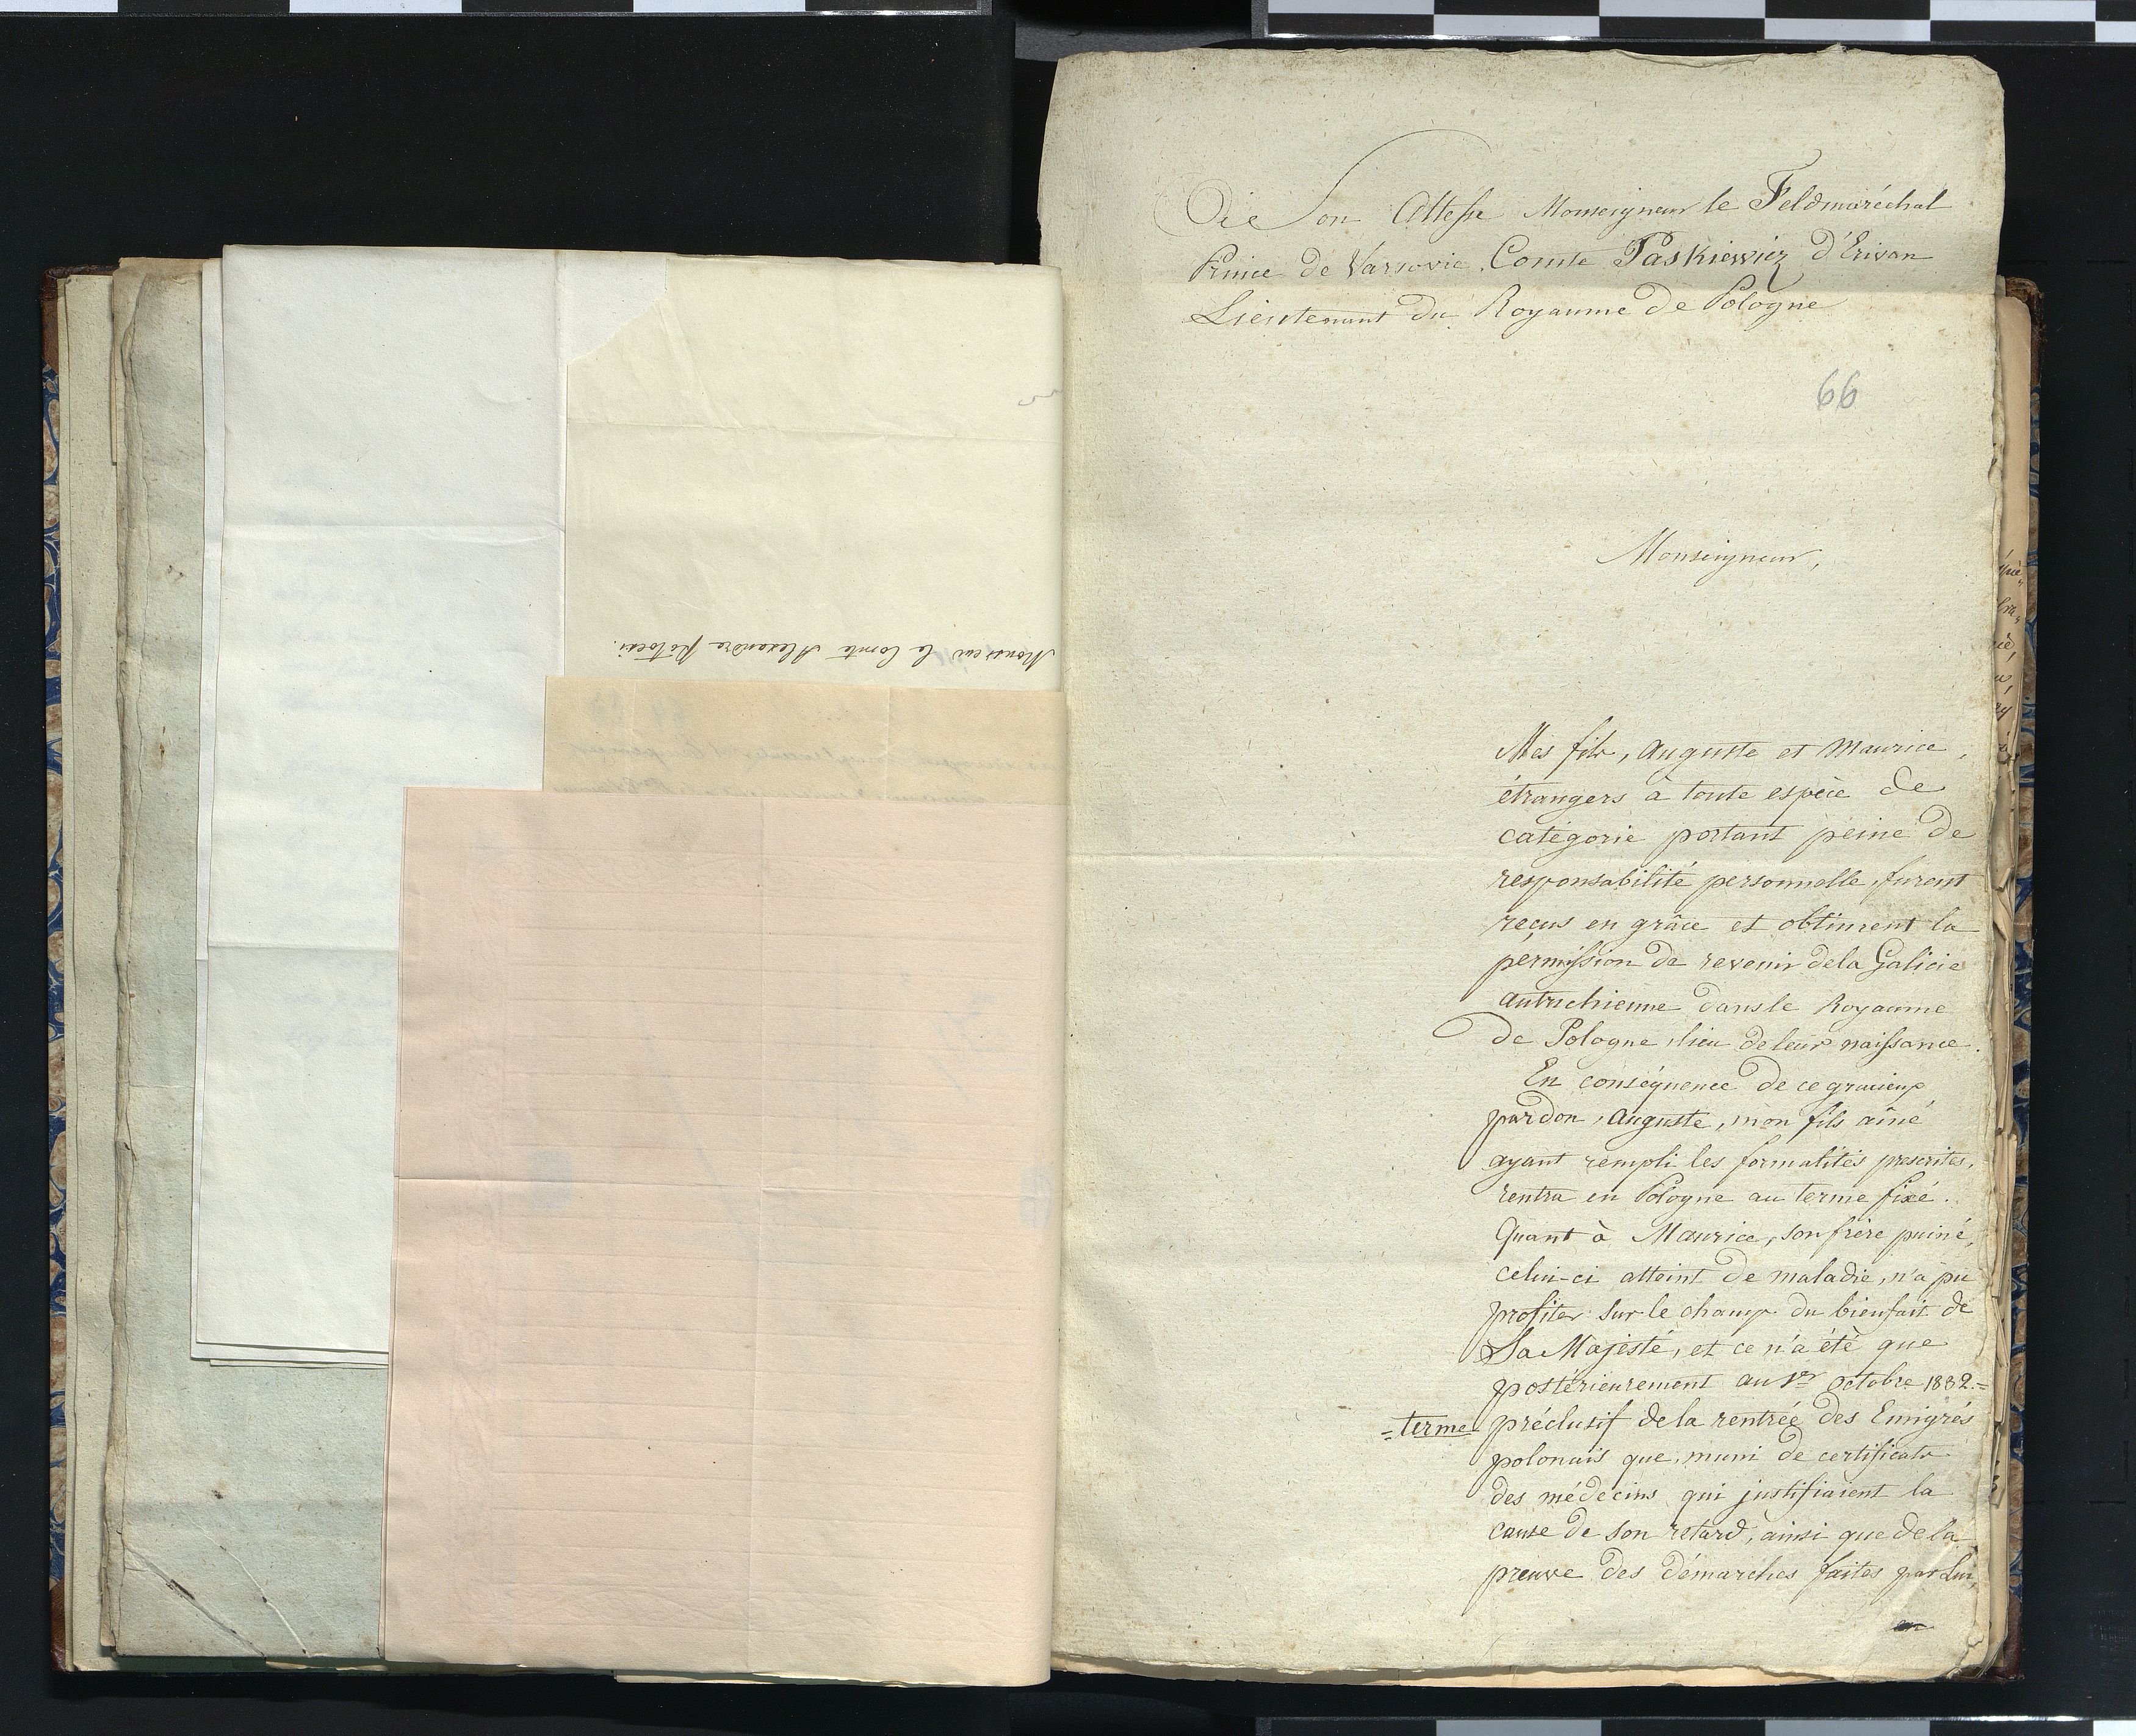 Monsieur le Comte Alexandre Potocki.
Son Altesse Monseigneur le Feldmaréchal
Prince de Varsovie, Comte Paskiewicz d'Erivan
Lieutenant du Royaume de Pologne
66
Monseigneur,
Mes fils, Auguste et Maurice,
étrangers à toute espèce de
catégorie portant peine de
responsabilité personnelle, furent
reçus en grâce et obtinrent la
permission de revenir de la Galicie
autrichienne dans le Royaume
de Pologne, lieu de leur naissance.
En conséquence de ce gracieux
pardon, Auguste, mon fils aîné
ayant rempli les formalités prescrites,
rentra en Pologne au terme fixé.
Quant à Maurice, son frère puiné,
celui-ci atteint de maladie, n'a pu
profiter sur le champ du bienfait de
Sa Majesté, et ce n'a été que
postérieurement au 1er Octobre 1832.=
=terme préclusif de la rentrée des Emigrés
polonais que, muni de certificats
des médecins qui justifiaient la
cause de son retard, ainsi que de la
preuve des démarches faites par Lui,
en